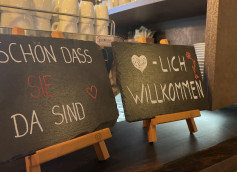 SCHÖN DASS
SIE
DA SIND
-LICH
WILLKOMMEN